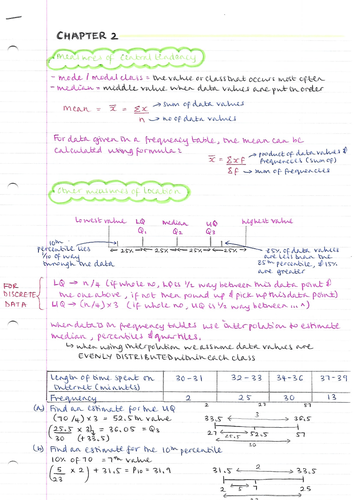 CHAPTER 2
Measures of Central Tendancy
- mode / modal class = the value or class that occurs most often
- median = middle value when data values are put in order
mean = x̄ = Σx → sum of data values
n → no of data values
For data given in a frequency table, the mean can be
calculated using formula:
x̄ = Σxf → product of data values & frequencies (sum of)
Σf → sum of frequencies
Other measures of location
lowest value LQ median UQ highest value
Q1 Q2 Q3
10th percentile lies 1/10 of way through the data
25% 25% 25% 25%
85% of data values are less than the 85th percentile, & 15% are greater
FOR DISCRETE DATA
LQ → n/4 (if whole no, LQ is ½ way between this data point &
the one above, if not then round up & pick up this data point)
UQ → (n/4) × 3 (if whole no, UQ is ½ way between "")
when data in frequency tables use interpolation to estimate
median, percentiles & quartiles.
↳ when using interpolation we assume data values are
EVENLY DISTRIBUTED within each class
Length of time spent on internet (minutes) 30-31 32-33 34-36 37-39
Frequency 2 25 30 13
2 27 57 70
(a) Find an estimate for the UQ
(70/4) × 3 = 52.5th value
33.5 3 36.5
27 52.5 57
25.5
30
(+33.5) = 36.05 = Q3
(b) Find an estimate for the 10th percentile
10% of 70 = 7th value
31.5 2 33.5
2 5 7 27
25
+ 31.5 = P10 = 31.9